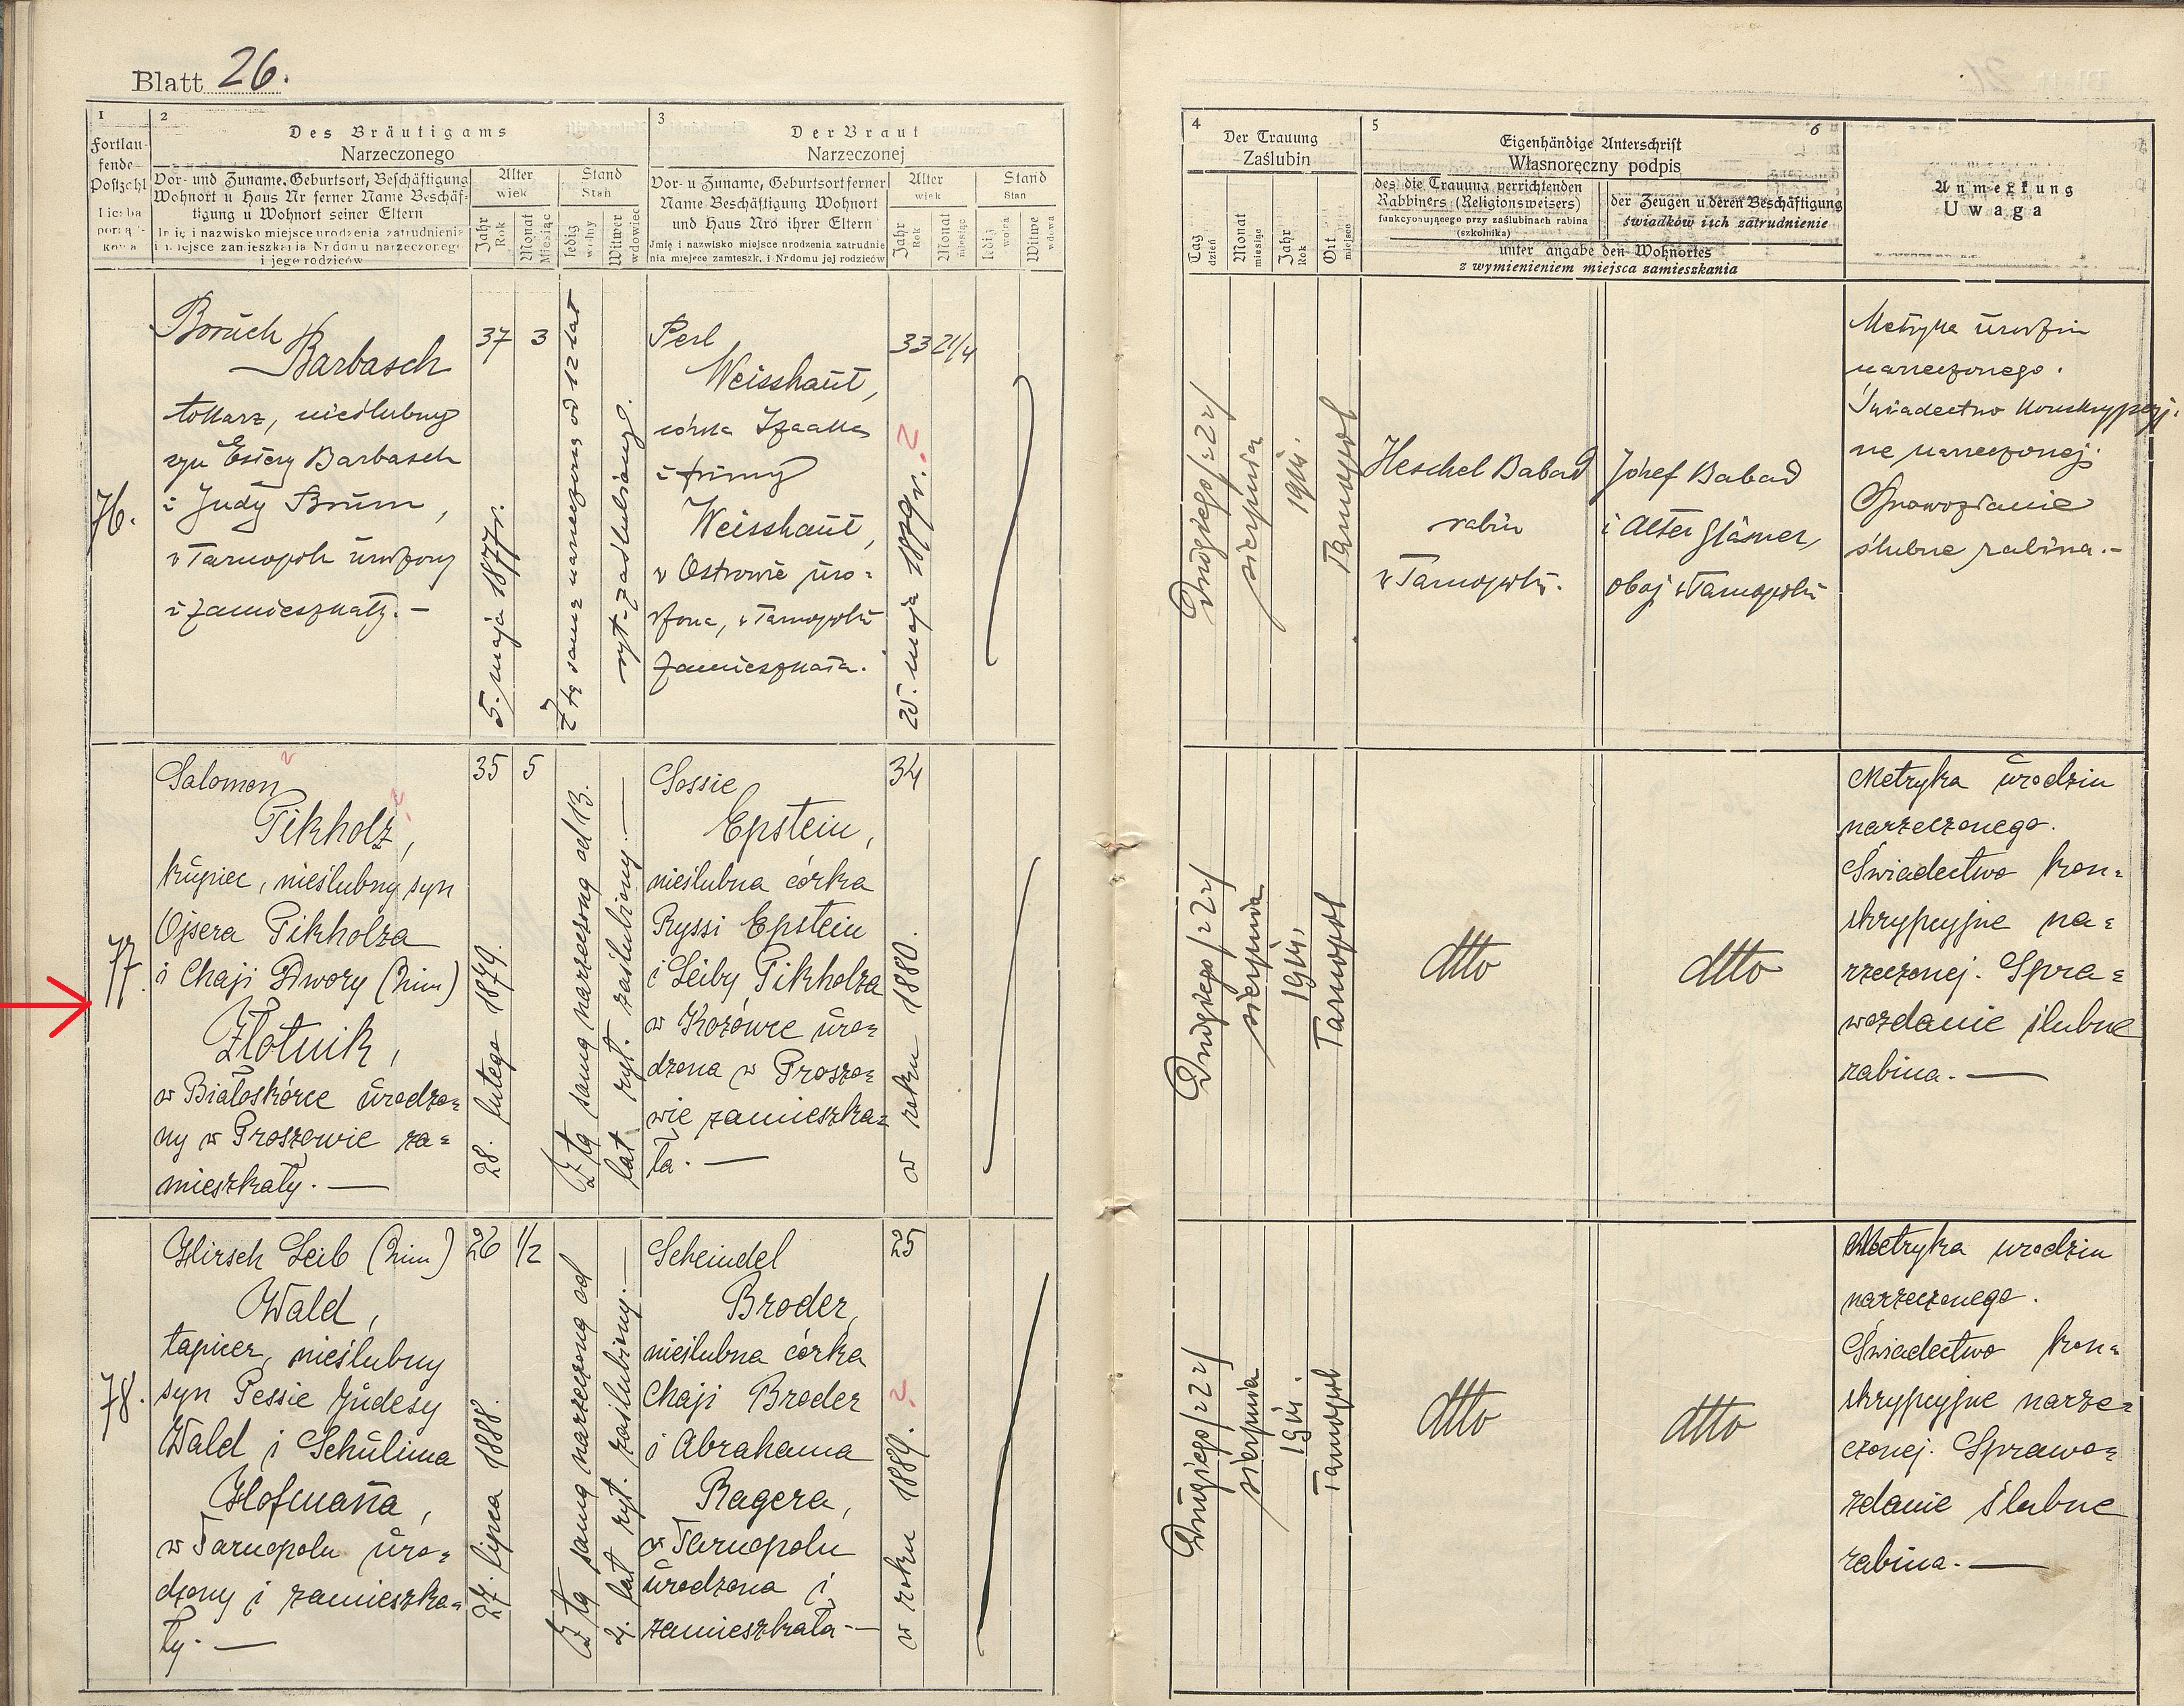 Blatt 26.
1
Fortlau-
fende
Postzahl
Liczba
2
Des Bräutigams
Narzeczonego
Vor- und Zuname, Geburtsort, Beschäftigung
Wohnort u Haus Nr ferner Name Beschäf-
tigung u Wohnort seiner Eltern
Imię i nazwisko miejsce urodzenia zatrudnienie
i miejsce zamieszkania Nr domu narzeczonego
i jego rodziców
Alter
wiek
Jahr
Rok
Monat
Miesiąc
Stand
Stan
ledig
wolny
Witwer
wdowiec
3
Der Braut
Narzeczonej
Vor- u Zuname, Geburtsort ferner
Name Beschäftigung Wohnort
und Haus Nro ihrer Eltern
Jmię i nazwisko miejsce nrodzenia zatrudnie
nia miejsce zamieszk. i Nr domu jej rodziców
Alter
wiek
Jahr
Rok
Monat
miesiąc
Stand
Stan
ledig
wolna
Witwe
wdowa
4
Der Trauung
Zaślubin
Tag
dzień
Monat
miesiąc
Jahr
Rok
Ort
miejsce
5
6
Eigenhändige Unterschrift
Własnoręczny podpis
des die Trauung verrichtenden
Rabbiners (Religionsweisers)
funkcyonującego przy zaślubinach rabina
(szkolnika)
der Zeugen u deren Beschäftigung
świadków i ich zatrudnienie
unter angabe den Wohnortes
z wymienieniem miejsca zamieszkania
Anmerkung
Uwaga
76.
Boruch
Barbasch
tokarz, nieślubny
syn Estery Barbasch
i Judy Brum,
w Tarnopolu urodzony
i zamieszkały.-
37
3
5. maja 1877 r.
Z tą samą narzeczoną od 12 lat
ryt. zaślubiony.
Perl
Weisshaut,
córka Izaaka
i Frimy
Weisshaut,
w Ostrowie uro=
dzona, w Tarnopolu
zamieszkała.
33
2 1/4
25. maja 1879 r.
Drugiego /: 2 :/
sierpnia
1914.
Tarnopol
Heschel Babad
rabin
w Tarnopolu.
Józef Babad
i Alter Gläsner,
obaj w Tarnopolu
Metryka urodzin
narzeczonego.
Świadectwo konskrypcyj-
ne narzeczonej.
Sprawozdanie
ślubne rabina.-
77.
Salomon
Pikholz,
kupiec, nieślubny syn
Ojsera Pikholza
i Chaji Dwory (2im)
Złotnik,
w Białoskórce urodzo=
ny w Proszowie za=
mieszkały. —
35
5
28. lutego 1879.
Z tą samą narzeczoną od 13.
lat ryt. zaślubiony. —
Sossie
Epstein,
nieślubna córka
Ryssi Epstein
i Leiby Pikholza
w Kozówce uro=
dzona w Proszo=
wie zamieszka=
ła. —
34
w roku 1880.
Drugiego /: 2 :/
sierpnia
1914.
Tarnopol
dtto
dtto
Metryka urodzin
narzeczonego.
Świadectwo kon=
skrypcyjne na=
rzeczonej. Spra=
wozdanie ślubne
rabina. —
78.
Hirsch Leib (2im)
Wald,
tapicer, nieślubny
syn Pessie Judesy
Wald i Schulima
Hofmana,
w Tarnopolu uro=
dzony i zamieszka=
ły. —
26
1/2
27. lipca 1888.
Z tą samą narzeczoną od
4. lat ryt. zaślubiony. —
Scheindel
Broder,
nieślubna córka
Chaji Broder
i Abrahama
Ragera,
w Tarnopolu
urodzona i
zamieszkała-—
25
w roku 1889.
Drugiego /: 2 :/
sierpnia
1914.
Tarnopol
dtto
dtto
Metryka urodzin
narzeczonego.
Świadectwo kon=
skrypcyjne narze=
czonej. Sprawo=
zdanie ślubne
rabina. —